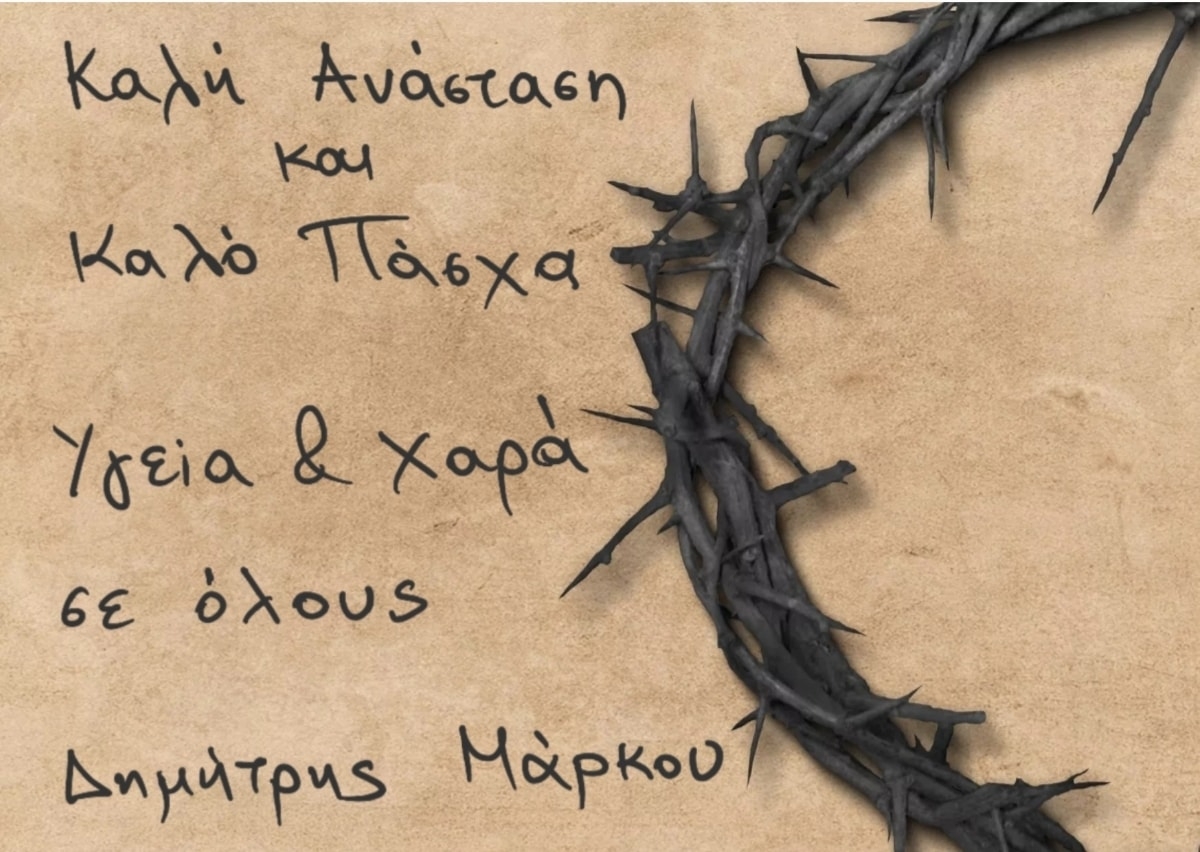 Καλή Ανάσταση
και
Καλό Πάσχα
Υγεία & Χαρά
σε όλους
Δημήτρης Μάρκου